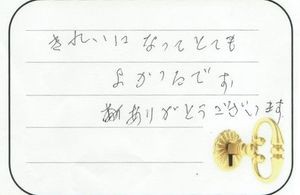 きれいになってとても
よかったです
ありがとうございます